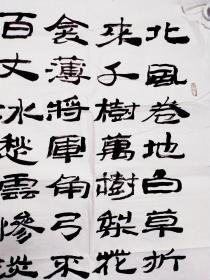 北風卷地白草折
來千樹萬樹梨花
衾薄將軍角弓不
百丈冰愁雲慘淡